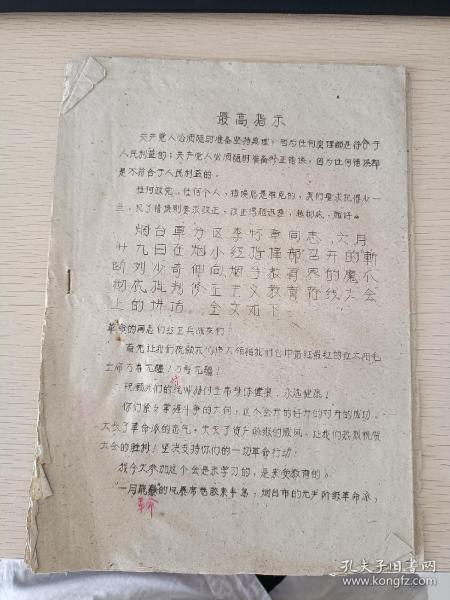 最高指示
共产党人必须随时准备坚持真理，因为任何真理都是符合于
人民利益的；共产党人必须随时准备修正错误，因为任何错误都
是不符合于人民利益的。
任何政党，任何个人，错误总是难免的，我们要求犯得少一
点，犯了错误则要求改正，改正得越迅速，越彻底，越好。
烟台军分区李怀章同志，六月
廿九日在烟小红指挥部召开的“斩
断刘少奇伸向烟台教育界的魔爪
彻底批判修正主义教育路线大会
上的讲话。全文如下：
革命的同志们红卫兵战友们：
首先让我们祝愿我们伟大领袖我们心中最红最红的红太阳毛
主席万寿无疆！万寿无疆！
祝愿我们的统帅林付主席身体健康，永远健康！
你们紧紧掌握斗争的大向，这个会开的好开的
大长了革命派的志气，大灭了资产阶级的威风，让我们热烈祝贺
大会的胜利！坚决支持你们的一切革命行动！
我今天参加这个会是来学习的，是来受教育的。
“一月 的风暴席卷胶东半岛，烟台市的无产阶级革命派，
革命
孔夫子旧书网
www.kongfz.com